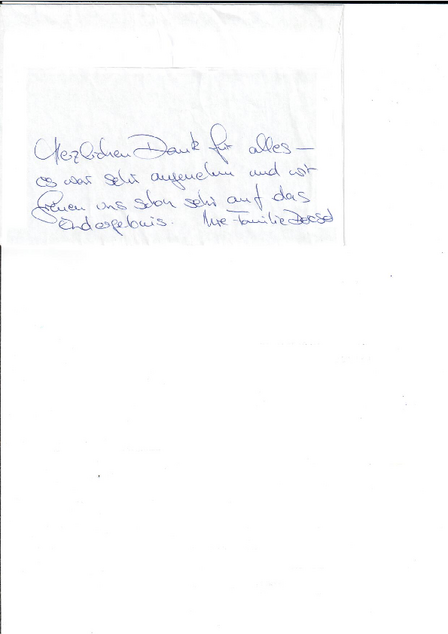 Herzlichen Dank für alles –
es war sehr angenehm und wir
freuen uns schon sehr auf das
Endergebnis. Ihre Familie